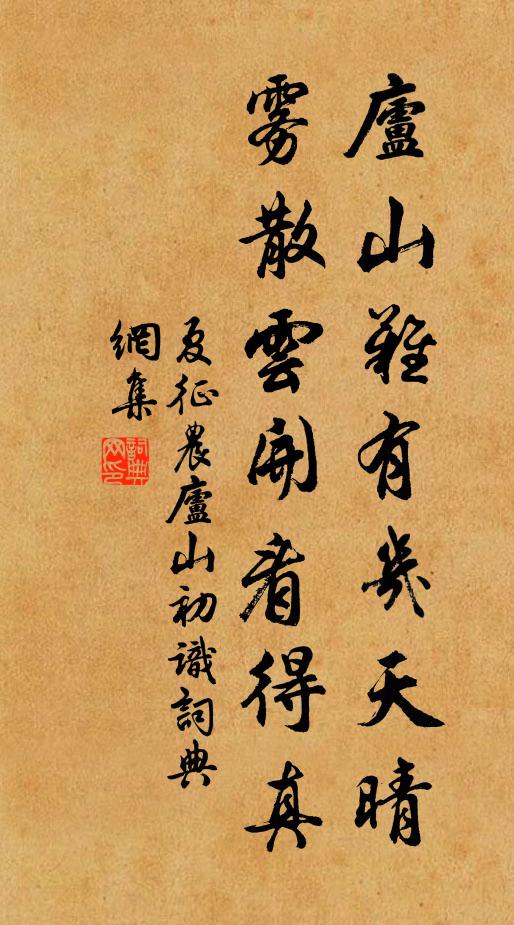 廬山難有幾天晴
霧散雲開看得真
夏征農廬山初識詞典
網集
詞典
网印